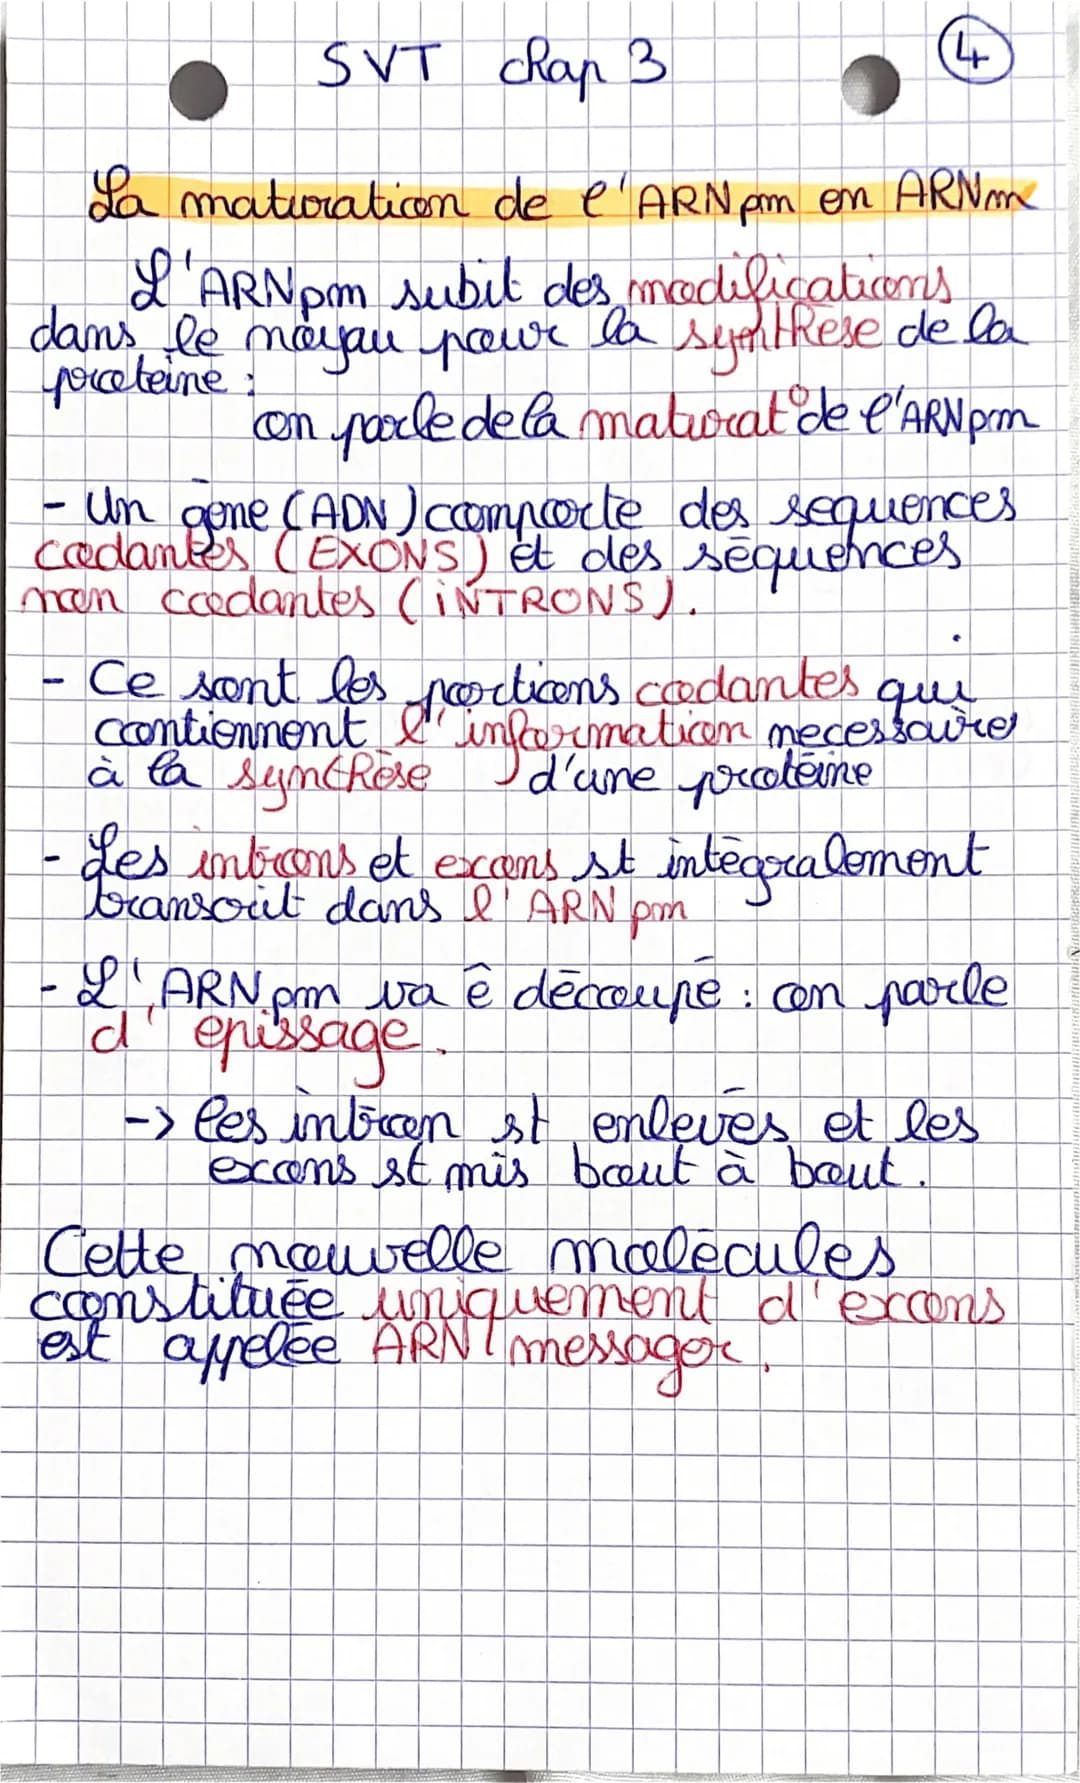 SVT chap 3
4
La maturation de l'ARNpm en ARNm
L'ARNpm subit des modifications
dans le noyau pour la synthèse de la
proteine :
on parle de la maturat° de l'ARNpm
- Un gène (ADN) comporte des sequences
codantes (EXONS) et des séquences
non codantes (iNTRONS).
- Ce sont les portions codantes qui
contiennent l'information necessaire
à la synthèse d'une protéine
- Les introns et exons st intégralement
transcrit dans l'ARN pm
- L'ARNpm va ê découpé : on parle
d'epissage.
-> les intron st enlevés et les
exons st mis bout à bout.
Cette nouvelle molécules
constituée uniquement d'exons
est appelée ARN messager.